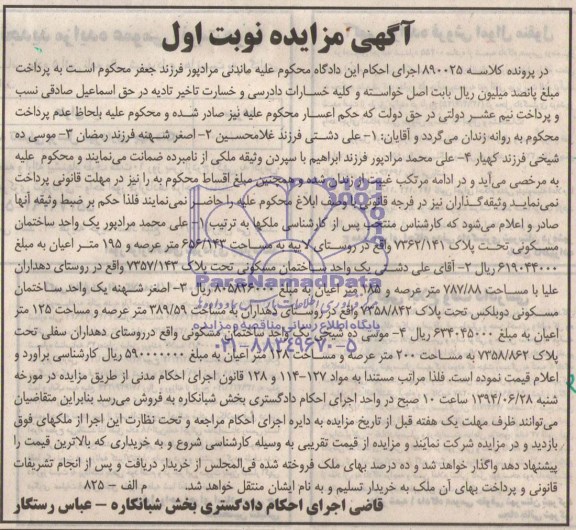 آگهی مزایده نوبت اول
در پرونده کلاسه ۸۹۰۰۲۵ اجرای احکام این دادگاه محکوم علیه ماندنی مرادپور فرزند جعفر محکوم است به پرداخت
مبلغ پانصد میلیون ریال بابت اصل خواسته و کلیه خسارات دادرسی و خسارت تاخیر تادیه در حق اسماعیل صادقی نسب
و پرداخت نیم عشر دولتی در حق دولت که حکم اعسار محکوم علیه نیز صادر شده و محکوم علیه بلحاظ عدم پرداخت
محکوم به روانه زندان می‌گردد و آقایان: ۱- علی دشتی فرزند غلامحسین ۲- اصغر شهنه فرزند رمضان ۳- موسی ده
شیخی فرزند کهیار ۴- علی محمد مرادپور فرزند ابراهیم با سپردن وثیقه ملکی از نامبرده ضمانت می‌نمایند و محکوم علیه
به مرخصی می‌آید و در ادامه مرتکب غیبت از زندان شده و همچنین مبلغ اقساط محکوم به را نیز در مهلت قانونی پرداخت
نمی‌نماید وثیقه‌گذاران نیز در فرجه قانونی ابلاغ محکوم علیه را حاضر نمی‌نمایند فلذا حکم بر ضبط وثیقه آنها
صادر و اعلام می‌شود که کارشناس منتخب پس از کارشناسی ملکها به ترتیب ۱- علی محمد مرادپور یک واحد ساختمان
مسکونی تحت پلاک ۷۳۶۲/۱۴۱ واقع در روستای لاتیه به مساحت ۶۵۶/۱۴۳ متر عرصه و ۱۹۵ متر اعیان به مبلغ
۶۱۹۰۴۴۰۰۰ ریال ۲- آقای علی دشتی یک واحد ساختمان مسکونی تحت پلاک ۷۳۵۷/۱۴۳ واقع در روستای دهداران
علیا با مساحت ۷۸۷/۸۸ متر عرصه و ۱۸۵ متر اعیان به مبلغ ۸۰۵۸۳۶۰۰۰ ریال ۳- اصغر شهنه یک واحد ساختمان
مسکونی دوبلکس تحت پلاک ۷۳۵۸/۸۴۲ واقع در روستای دهداران به مساحت ۳۸۹/۵۹ متر عرصه و مساحت ۱۲۵ متر
اعیان به مبلغ ۶۳۴۰۴۵۰۰۰ ریال ۴- موسی ده شیخی یک واحد ساختمان مسکونی واقع درروستای دهداران سفلی تحت
پلاک ۷۳۵۸/۸۶۲ به مساحت ۲۰۰ متر عرصه و مساحت ۱۲۸ متر اعیان به مبلغ ۵۹۰۰۰۰۰۰۰ ریال کارشناسی برآورد و
اعلام قیمت نموده است. فلذا مراتب مستندا به مواد ۱۲۷-۱۱۴ و ۱۲۸ قانون اجرای احکام مدنی از طریق مزایده در مورخه
شنبه ۱۳۹۴/۰۶/۲۸ ساعت ۱۰ صبح در واحد اجرای احکام دادگستری بخش شبانکاره به فروش می‌رسد بنابراین متقاضیان
می‌توانند ظرف مهلت یک هفته قبل از تاریخ مزایده به دایره اجرای احکام مراجعه و تحت نظارت این اجرا از ملکهای فوق
بازدید و در مزایده شرکت نمایند و مزایده از قیمت تقریبی به وسیله کارشناسی شروع و به خریداری که بالاترین قیمت را
پیشنهاد دهد واگذار خواهد شد و ده درصد بهای ملک فروخته شده فی‌المجلس از خریدار دریافت و پس از انجام تشریفات
قانونی و پرداخت بهای آن ملک به خریدار تسلیم و به نام ایشان منتقل خواهد شد. م الف - ۸۲۵
قاضی اجرای احکام دادگستری بخش شبانکاره - عباس رستگار
ParsNamadData
پایگاه اطلاع رسانی مناقصه و مزایده
۰۲۱-۸۸۳۴۹۶۷۰-۵